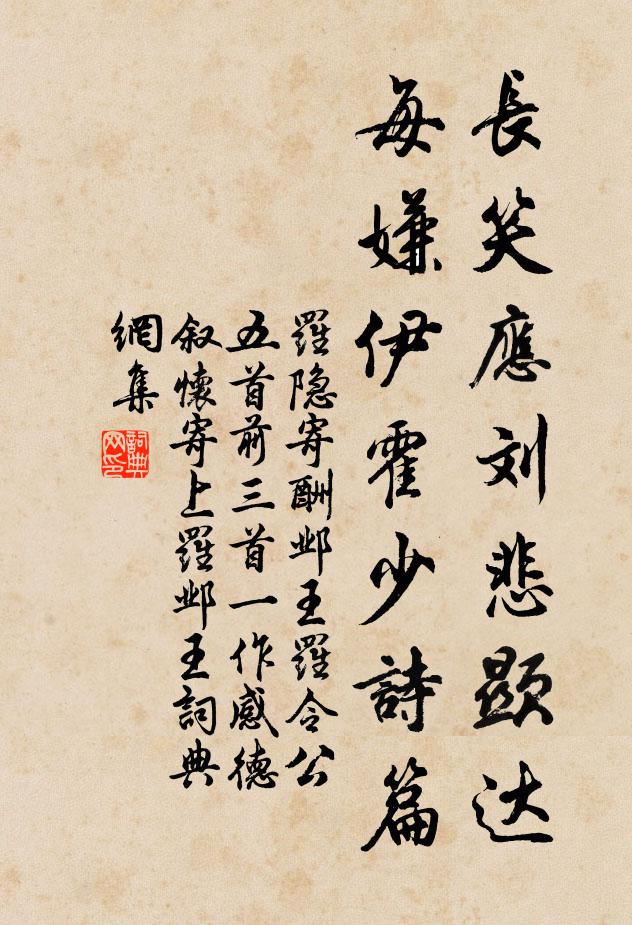 長笑應刘悲顯达
每嫌伊霍少詩篇
羅隐寄酬邺王羅令公
五首前三首一作感德
叙懷寄上羅邺王詞典
網集
詞典网印